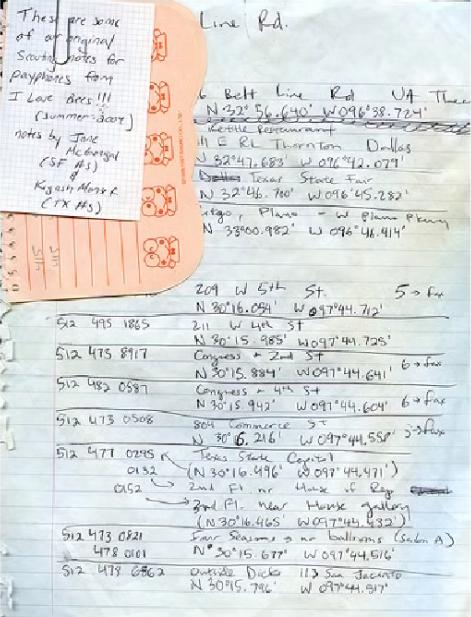 These are some
of our original
Scouting notes for
payphones from
I Love Bees!!!
(summer 2004)
notes by Jane
McGonigal
(SF #s)
&
(TX #s)
Line Rd.
6 Belt Line Rd UA
N 32° 56.640' W096°38.724'
Kettle Restaurant
111 E RL Thornton Dallas
N 32°47.683' W 096°42.079'
Texas State Fair
N 32°46.700' W 096°45.282'
Plano - W Plano Pkwy
N 33°00.982' W 096°46.414'
209 W 5th St. 5 → fax
N 30°16.054' W 097°44.712'
512 495 1865 211 W 4th St
N 30°15.985' W 097°44.725'
512 473 8917 Congress + 2nd St
N 30°15.884' W 097°44.641' 6 → fax
512 482 0587 Congress + 4th St
N 30°15.942' W 097°44.604' 6 → fax
512 473 0508 804 Commerce St
N 30°6.216' W 097°44.558' → fax
512 477 0295 Texas State Capitol
0132 (N 30°16.496' W 097°44.471')
2nd Fl. nr House of Rep
0152 3rd Fl. near House gallery
(N 30°16.465' W 097°44.432')
512 473 0821 Four Seasons → nr ballrooms (Salon A)
478 0101 N 30°15.677' W 097°44.516'
512 478 6362 outside Dicks 113 San Jacinto
N 30°15.796' W 097°44.517'